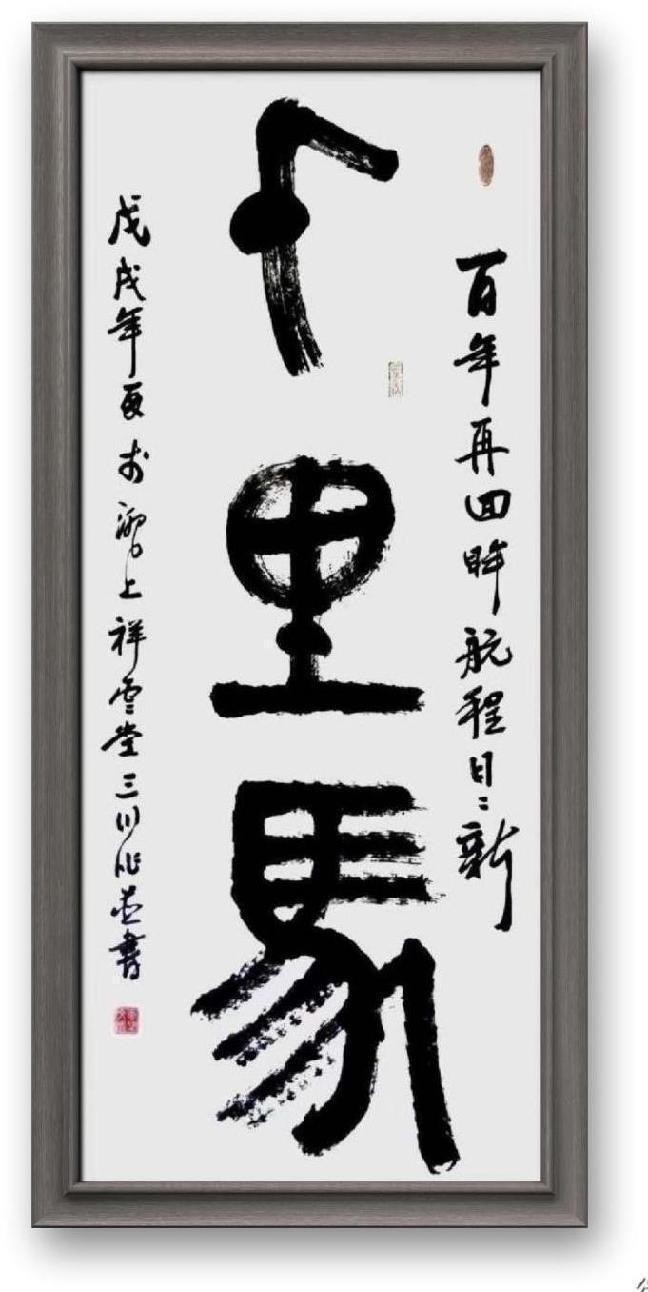 百年再回眸航程日〻新
千里馬
戊戌年夏於滬上祥雲堂三川作並書